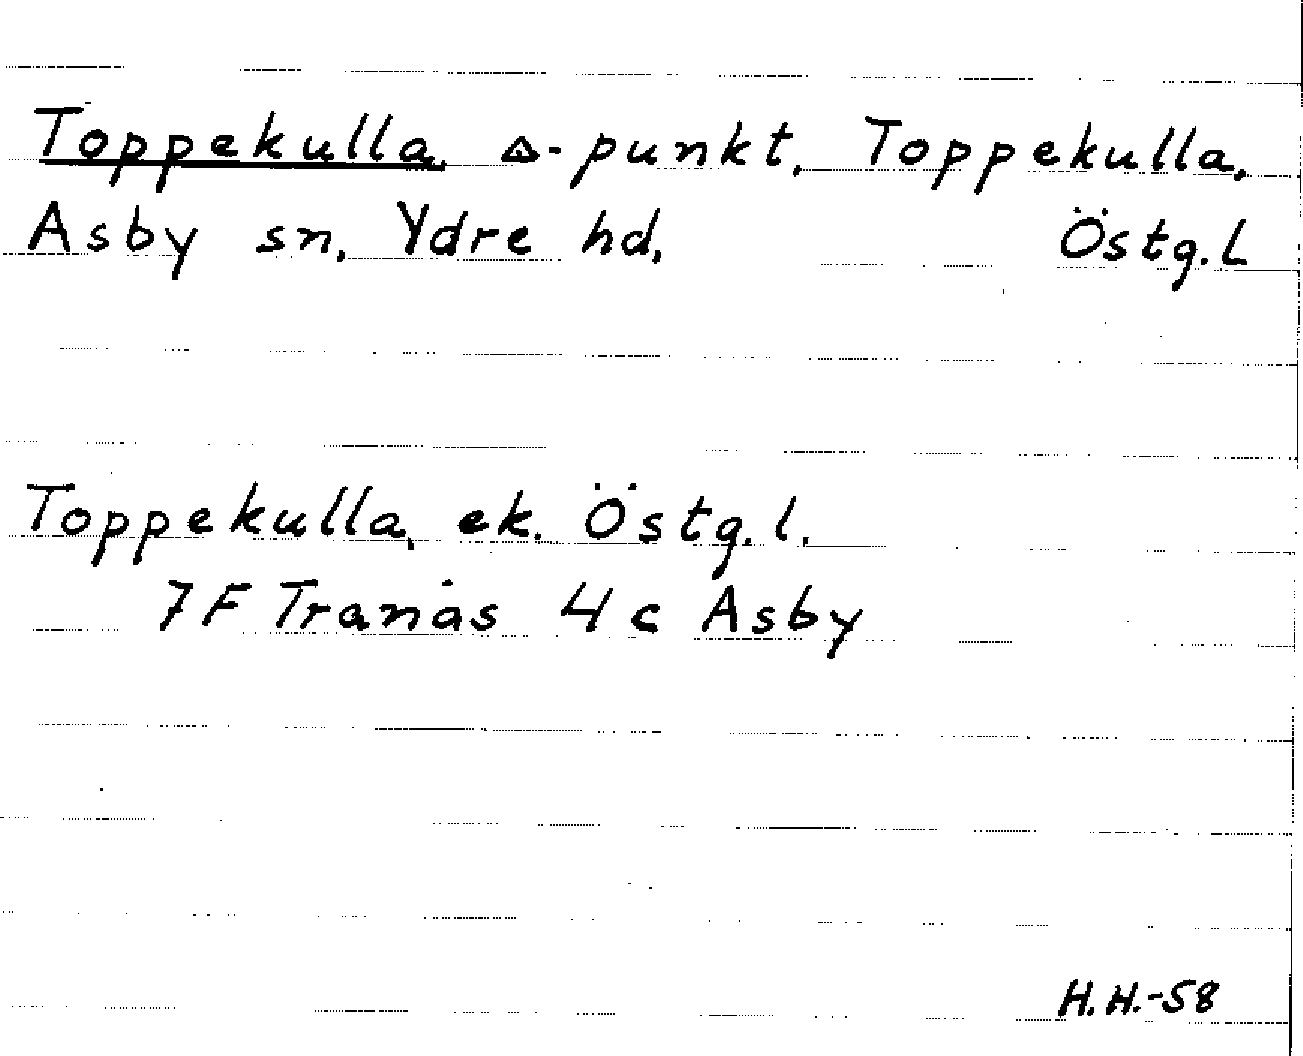 Toppekulla, △-punkt, Toppekulla,
Asby sn, Ydre hd, Östg. L
Toppekulla, ek. Östg. l.
7F Tranås 4c Asby
H.H.-58